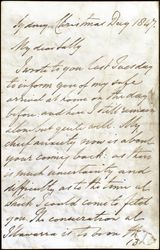 Sydney Christmas Day 1847
My dear Sally
I wrote to you last Tuesday
to inform you of my safe
arrival at home on the day
before and here I still remain
alone but quite well. My
chief anxiety now is about
your coming back: as there
is much uncertainty and
difficulty as to the time at
which I would come to fetch
you. The consecration at
Illawarra is to be on the